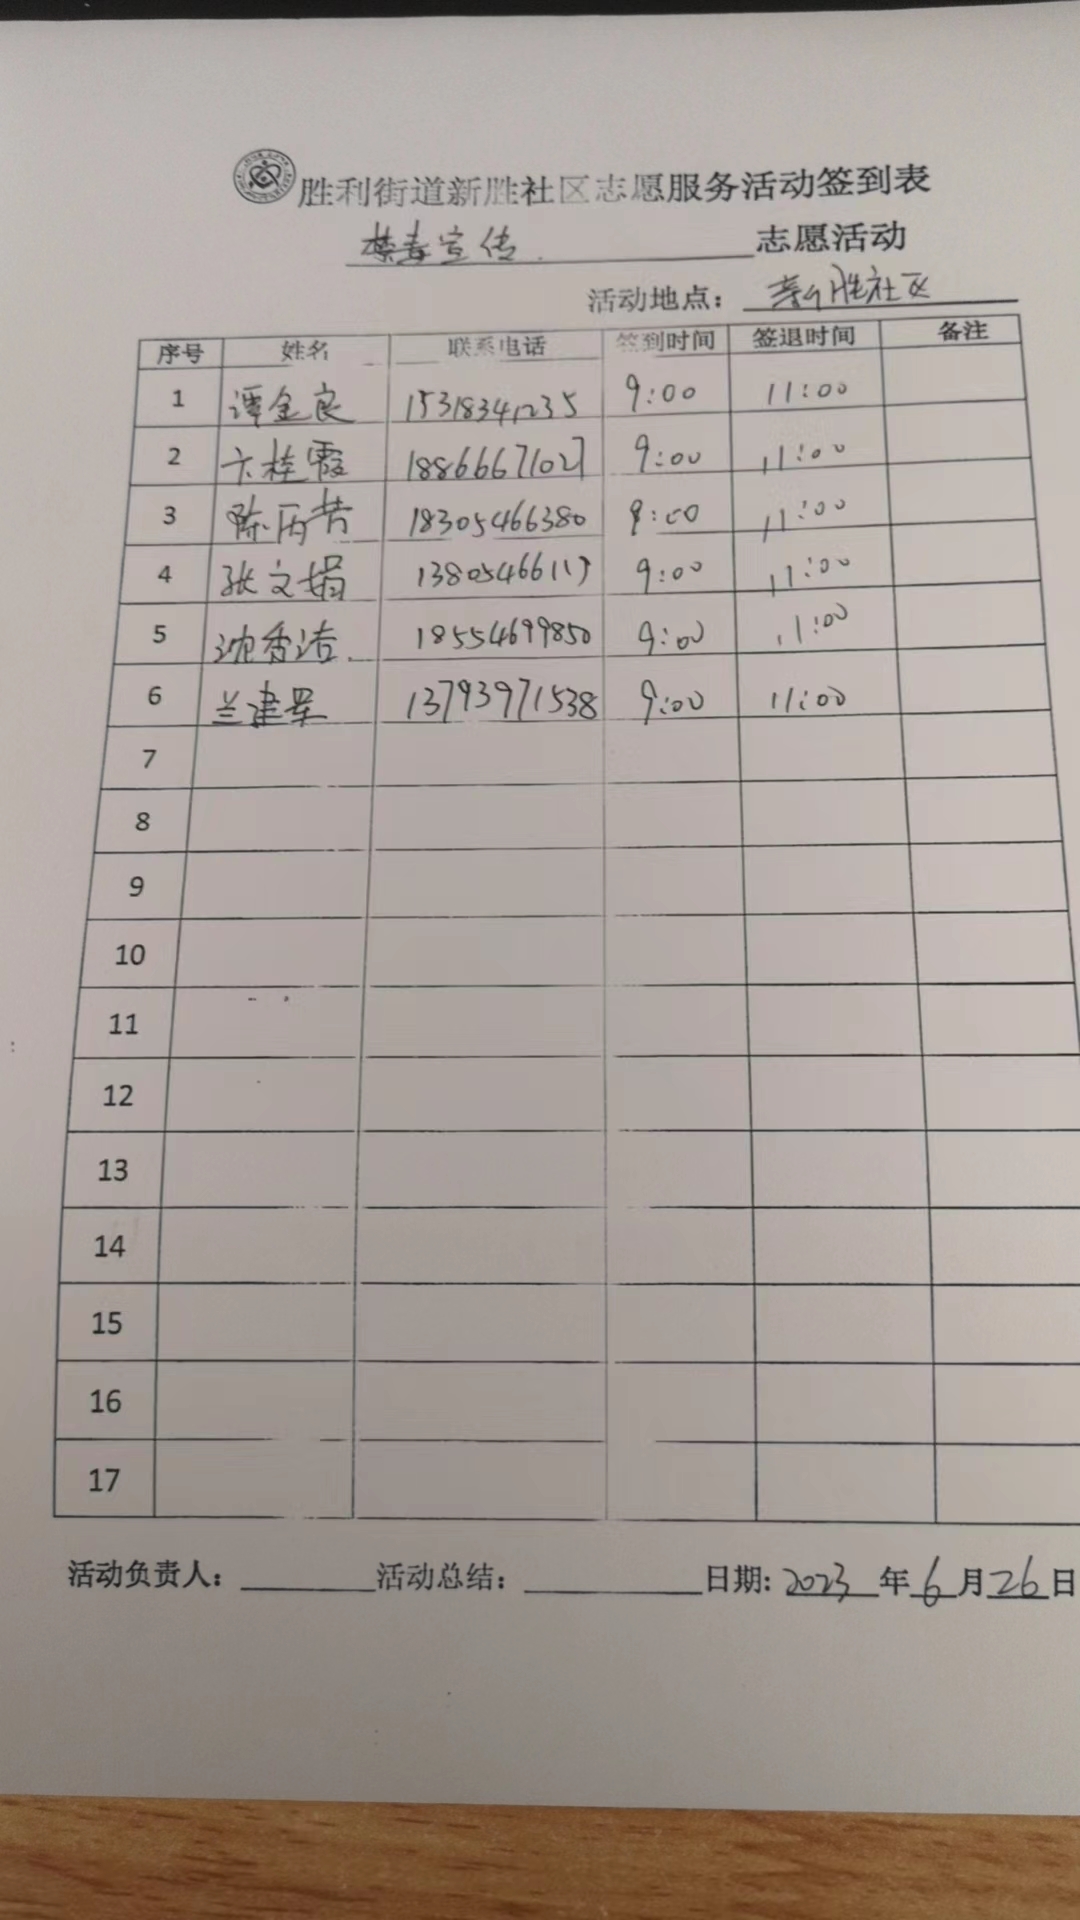 胜利街道新胜社区志愿服务活动签到表
禁毒宣传 志愿活动
活动地点：新胜社区
序号 姓名 联系电话 签到时间 签退时间 备注
1 谭金良 15318341235 9:00 11:00
2 卞桂霞 18866671027 9:00 11:00
3 陈丙芳 18305466380 9:00 11:00
4 张文娟 13805466117 9:00 11:00
5 沈香洁 18554699850 9:00 11:00
6 兰建军 13793971538 9:00 11:00
7
8
9
10
11
12
13
14
15
16
17
活动负责人： 活动总结： 日期：2023年6月26日